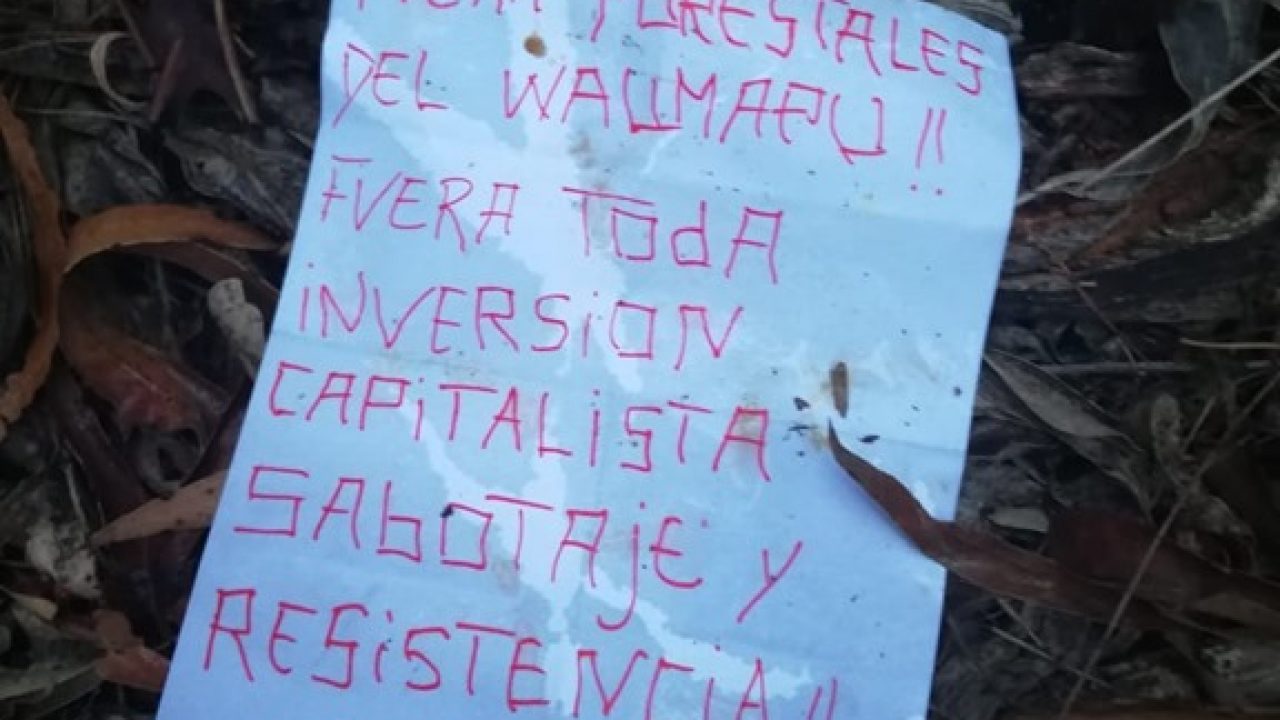 FORESTALES
DEL WALLMAPU!!
FUERA TOdA
iNVERSiON
CAPiTALiSTA
SAbOTAjE y
RESiSTENCiA!!